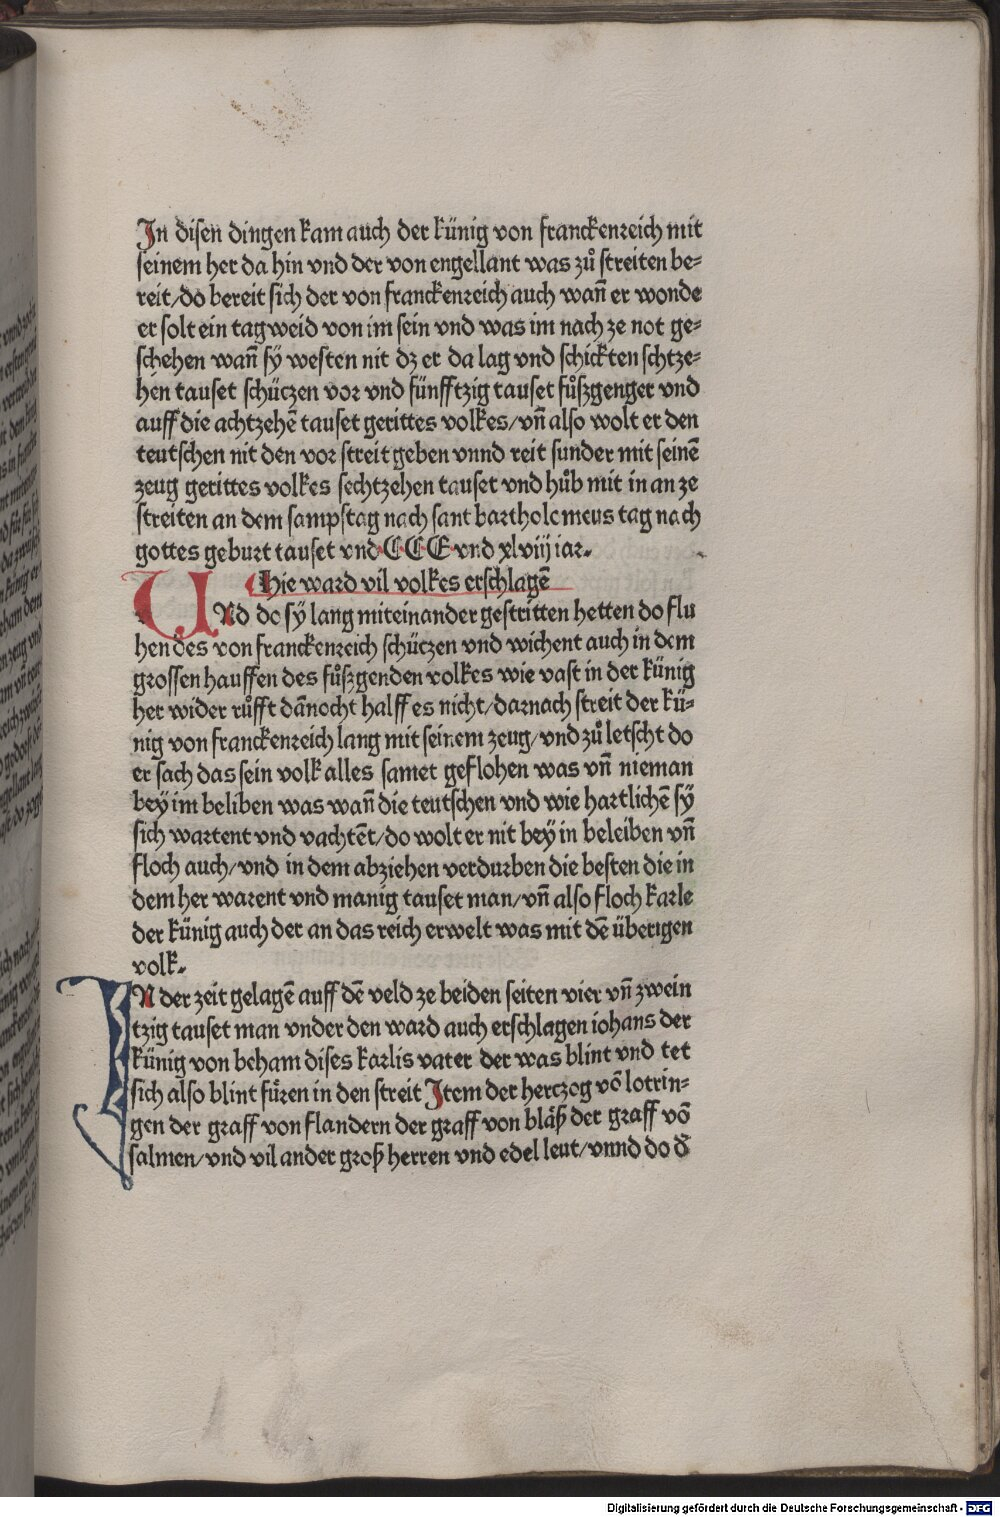 In disen dingen kam auch der künig von franckenreich mit
seinem her da hin vnd der von engellant was zuͦ streiten be⸗
reit/do bereit sich der von franckenreich auch wañ er wonde
er solt ein tagweid von im sein vnd was im nach ze not ge⸗
schehen wañ sy westen nit dz er da lag vnd schickten schtze⸗
hen tauset schüczen vor vnd fünfftzig tauset fuͦszgenger vnd
auff die achtzehē tauset gerittes volkes/vñ also wolt er den
teutschen nit den vor streit geben vnnd reit sunder mit seinē
zeug gerittes volkes sechtzehen tauset vnd huͦb mit in an ze
streiten an dem sampstag nach sant bartholomeus tag nach
gottes geburt tauset vnd CCC vnd xlviij iar.
Hie ward vil volkes erschlagē
UNd do sy lang miteinander gestritten hetten do flu
hen des von franckenreich schüczen vnd wichent auch in dem
grossen hauffen des fuͦszgenden volkes wie vast in der künig
her wider ruͦfft dānocht halff es nicht/darnach streit der kü⸗
nig von franckenreich lang mit seinem zeug/vnd zuͦ letscht do
er sach das sein volk alles samet geflohen was vñ nieman
bey im beliben was wañ die teutschen vnd wie hartlichē sy
sich wartent vnd vachtēt/do wolt er nit bey in beleiben vñ
floch auch/vnd in dem abziehen verdurben die besten die in
dem her warent vnd manig tauset man/vñ also floch karle
der künig auch der an das reich erwelt was mit dē überigen
volk.
IN der zeit gelagē auff dē veld ze beiden seiten vier vñ zwein
tzig tauset man vnder den ward auch erschlagen iohans der
künig von beham dises karlis vater der was blint vnd tet
sich also blint füren in den streit Item der herczog vō lotrin⸗
gen der graff von flandern der graff von bläß der graff vō
salmen/vnd vil ander groß herren vnd edel leut/vnnd do d̄
Digitalisierung gefördert durch die Deutsche Forschungsgemeinschaft - DFG